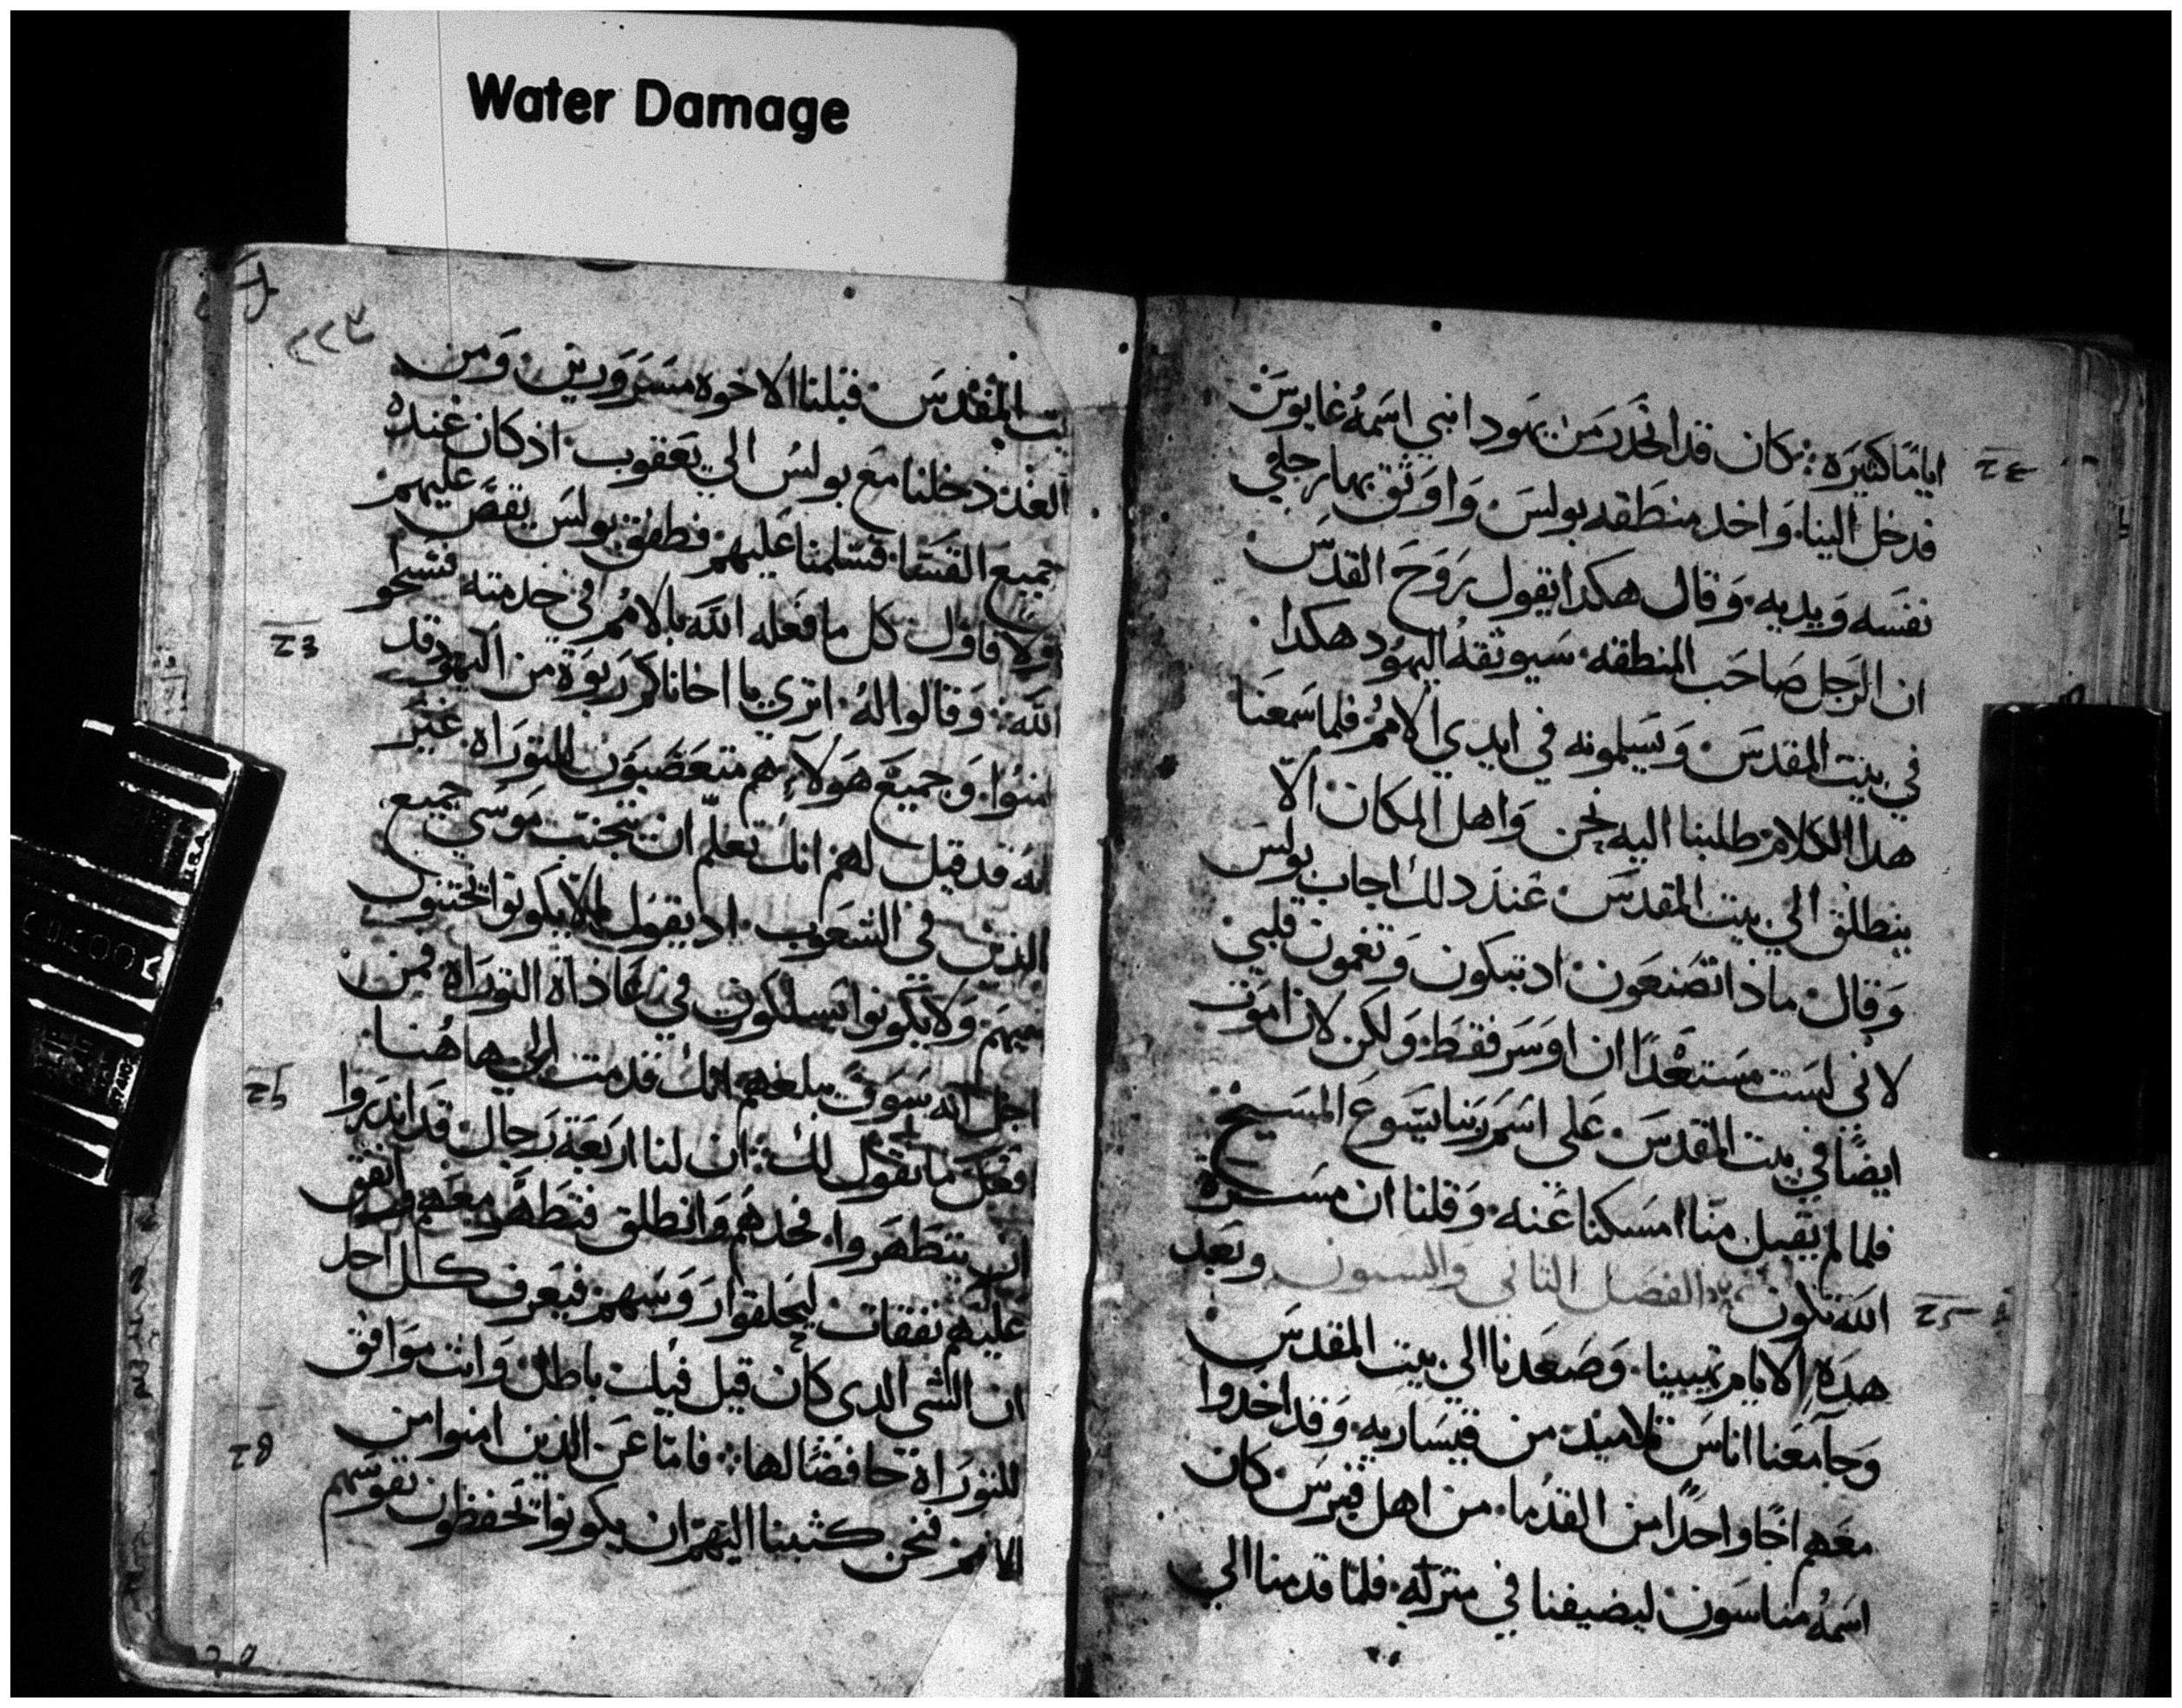 Water Damage
اياما كثيره: وكان قد انحدر من يهودا نبي اسمه غابوس
فدخل الينا. واخد منطقه بولس. واوثق بها رجلي
نفسه ويديه. وقال هكدا يقول روح القدس
ان الرجل صاحب المنطقه. سيوثقه اليهود هكدا
في بيت المقدس. ويسلمونه في ايدي الامم. فلما سمعنا
هدا الكلام طلبنا اليه نحن واهل المكان. الا
ينطلق الي بيت المقدس. عند دلك اجاب بولس
وقال. ماذا تصنعون. اد تبكون وتغمون قلبي
لاني لست مستعدا ان اوسر فقط. ولكن لان اموت
ايضا في بيت المقدس. على اسم ربنا يسوع المسيح
فلما لم يقبل منا امسكنا عنه. وقلنا ان مسرة
الله تكون الفصل الثاني والستون وبعد
هده الايام تهيينا. وصعدنا الي بيت المقدس
وجا معنا اناس تلاميد من قيساريه. وقد اخدوا
معهم اخا واحدا من القدما. من اهل قبرس كان
اسمه مناسون ليضيفنا في منزله. فلما قدمنا الي
٢٢٣
بيت المقدس. قبلنا الاخوه مسرورين. ومن
الغد دخلنا مع بولس الي يعقوب. اذ كان عنده
جميع القسا. فسلمنا عليهم. فطفق بولس يقص عليهم
اولا فاول كل ما فعله الله بالامم في خدمته. فسبحو
الله: وقالوا له. اتري يا اخانا كم ربوة من اليهود قد
امنوا. وجميع هولاء هم متعصبون للتوراه. غير
انه قد قيل لهم انك تعلم ان يتجنب موسي جميع
الذين في الشعوب. اد يقول الا يكونوا يختنون
بنيهم. ولا يكونوا يسلكون في عاداة التوراه فمن
اجل انه سوف يبلغهم انك قدمت الي هاهنا.
فافعل ما نقول لك: ان لنا اربعة رجال قد اندروا
ان يتطهروا. فخدهم وانطلق فتطهر معهم وانفق
عليهم نفقات. ليحلقوا روسهم. فيعرف كل احد
ان الشي الدي كان قيل فيك باطل. وانت موافق
للتوراة حافضا لها: فاما عن الذين امنوا من
الامم. فنحن كتبنا اليهم ان يكونوا يحفظون نفوسهم